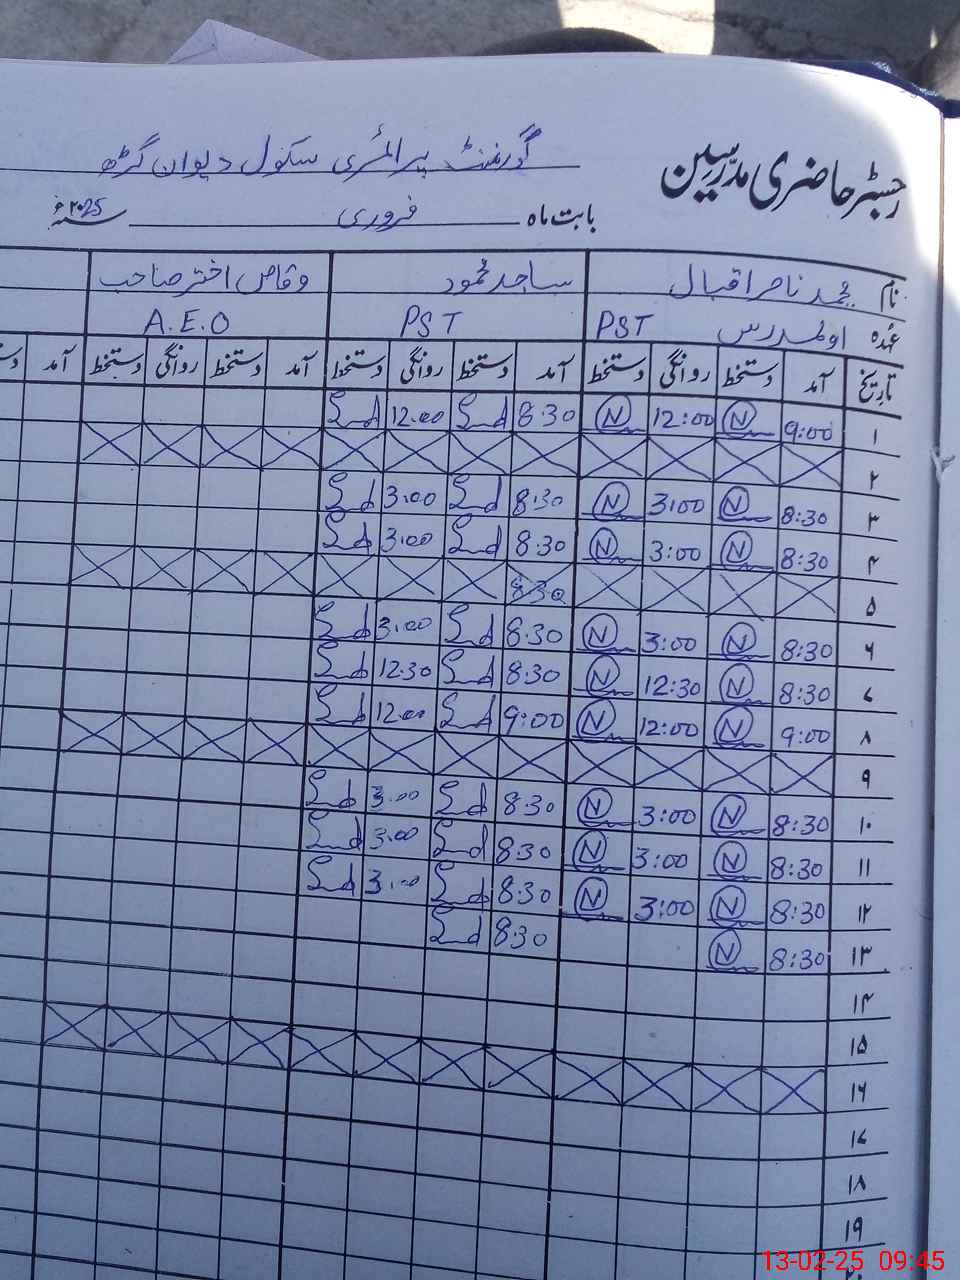 رجسٹر حاضری مدرسین
گورنمنٹ پرائمری سکول دیوان گڑھ
بابت ماہ فروری سنہ ۲۰25ء
نام محمد ناصر اقبال ساجد محمود وقاص اختر صاحب
عہدہ اول مدرس PST PST A.E.O
تاریخ آمد دستخط روانگی دستخط آمد دستخط روانگی دستخط آمد دستخط روانگی دستخط آمد
۱ 9:00 N 12:00 N 8:30 12.00
۲
۳ 8:30 N 3:00 N 8:30 3.00
۴ 8:30 N 3:00 N 8.30 3.00
۵ 8:30
۶ 8:30 N 3:00 N 8.30 3.00
۷ 8:30 N 12:30 N 8.30 12.30
۸ 9:00 N 12:00 N 9:00 12.00
۹
۱۰ 8:30 N 3:00 N 8.30 3.00
۱۱ 8:30 N 3:00 N 8.30 3.00
۱۲ 8:30 N 3:00 N 8.30 3.00
۱۳ 8:30 N 8.30
۱۴
۱۵
۱۶
۱۷
۱۸
۱۹
13-02-25 09:45